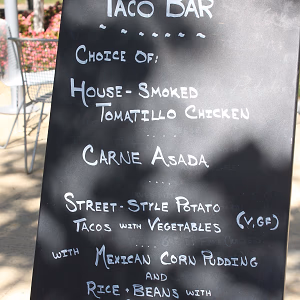 TACO BAR
CHOICE OF:
HOUSE-SMOKED
TOMATILLO CHICKEN
....
CARNE ASADA
....
STREET-STYLE POTATO
TACOS WITH VEGETABLES (V,GF)
WITH MEXICAN CORN PUDDING
AND
RICE + BEANS WITH